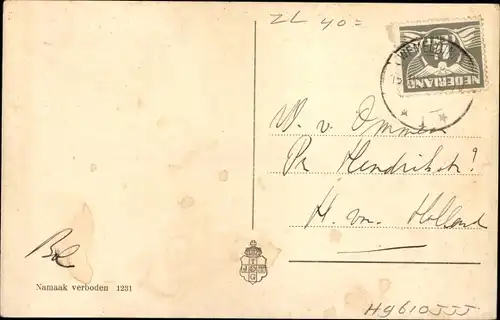 ZL 40=
NEDERLAND
W. v. Ommen
Pr Hendrikstr 9
H. v. Holland
Namaak verboden 1231
Hg610JJJ